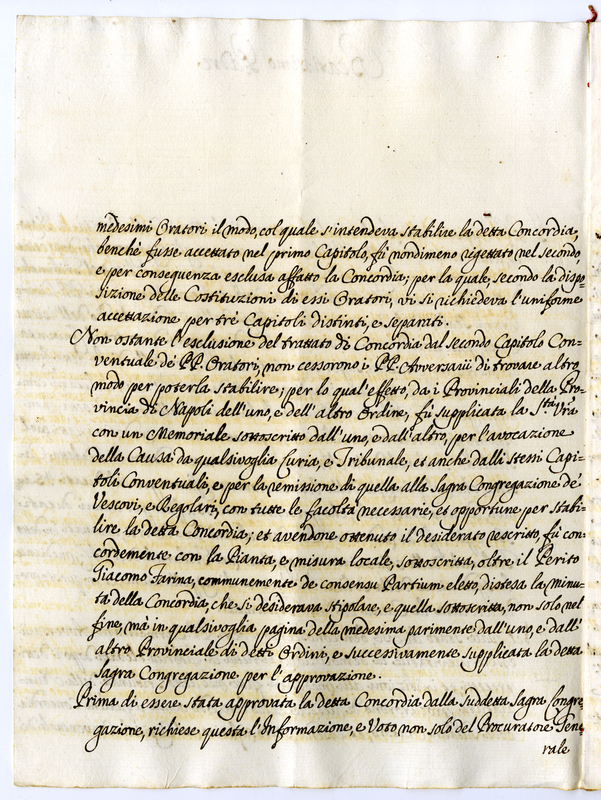 medesimi Oratori il modo, col quale s'intendeva stabilire la detta Concordia,
benchè fusse accettato nel primo Capitolo, fù nondimeno rigettato nel secondo,
e per conseguenza esclusa affatto la Concordia; per la quale, secondo la dispo=
sizione delle Costituzioni di essi Oratori, vi si richiedeva l'uniforme
accettazione per trè Capitoli distinti, e separati.
Non ostante l'esclusione del trattato di Concordia dal secondo Capitolo Con=
ventuale de PP. Oratori, non cessorono i PP. Avversarii di trovare altro
modo per poterla stabilire; per lo qual'effetto, da i Provinciali della Pro=
vincia di Napoli dell'uno, e dell'altro Ordine, fù supplicata la S.tà V.ra
con un Memoriale sottoscritto dall'uno, e dall'altro, per l'avocazione
della Causa da qualsivoglia Curia, e Tribunale, et anche dalli stessi Capi=
toli Conventuali, e per la remissione di quella alla Sagra Congregazione de
Vescovi, e Regolari, con tutte le facoltà necessarie, et opportune per stabi=
lire la detta Concordia; et avendone ottenuto il desiderato rescritto, fù con=
cordemente con la Pianta, e misura locale, sottoscritta, oltre il Perito
Giacomo Farina, communemente de consensu Partium eletto, distesa la minu=
ta della Concordia, che si desiderava stipolare, e quella sottoscritta, non solo nel
fine, mà in qualsivoglia pagina della medesima parimente dall'uno, e dall'
altro Provinciale di detti Ordini, e successivamente supplicata la detta
Sagra Congregazione per l'approvazione.
Prima di essere stata approvata la detta Concordia dalla suddetta Sagra Congre=
gazione, richiese questa l'Informazione, e Voto non solo del Procuratore Gene=
rale